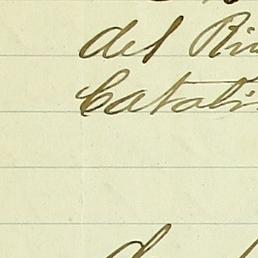 del Ri
Catali